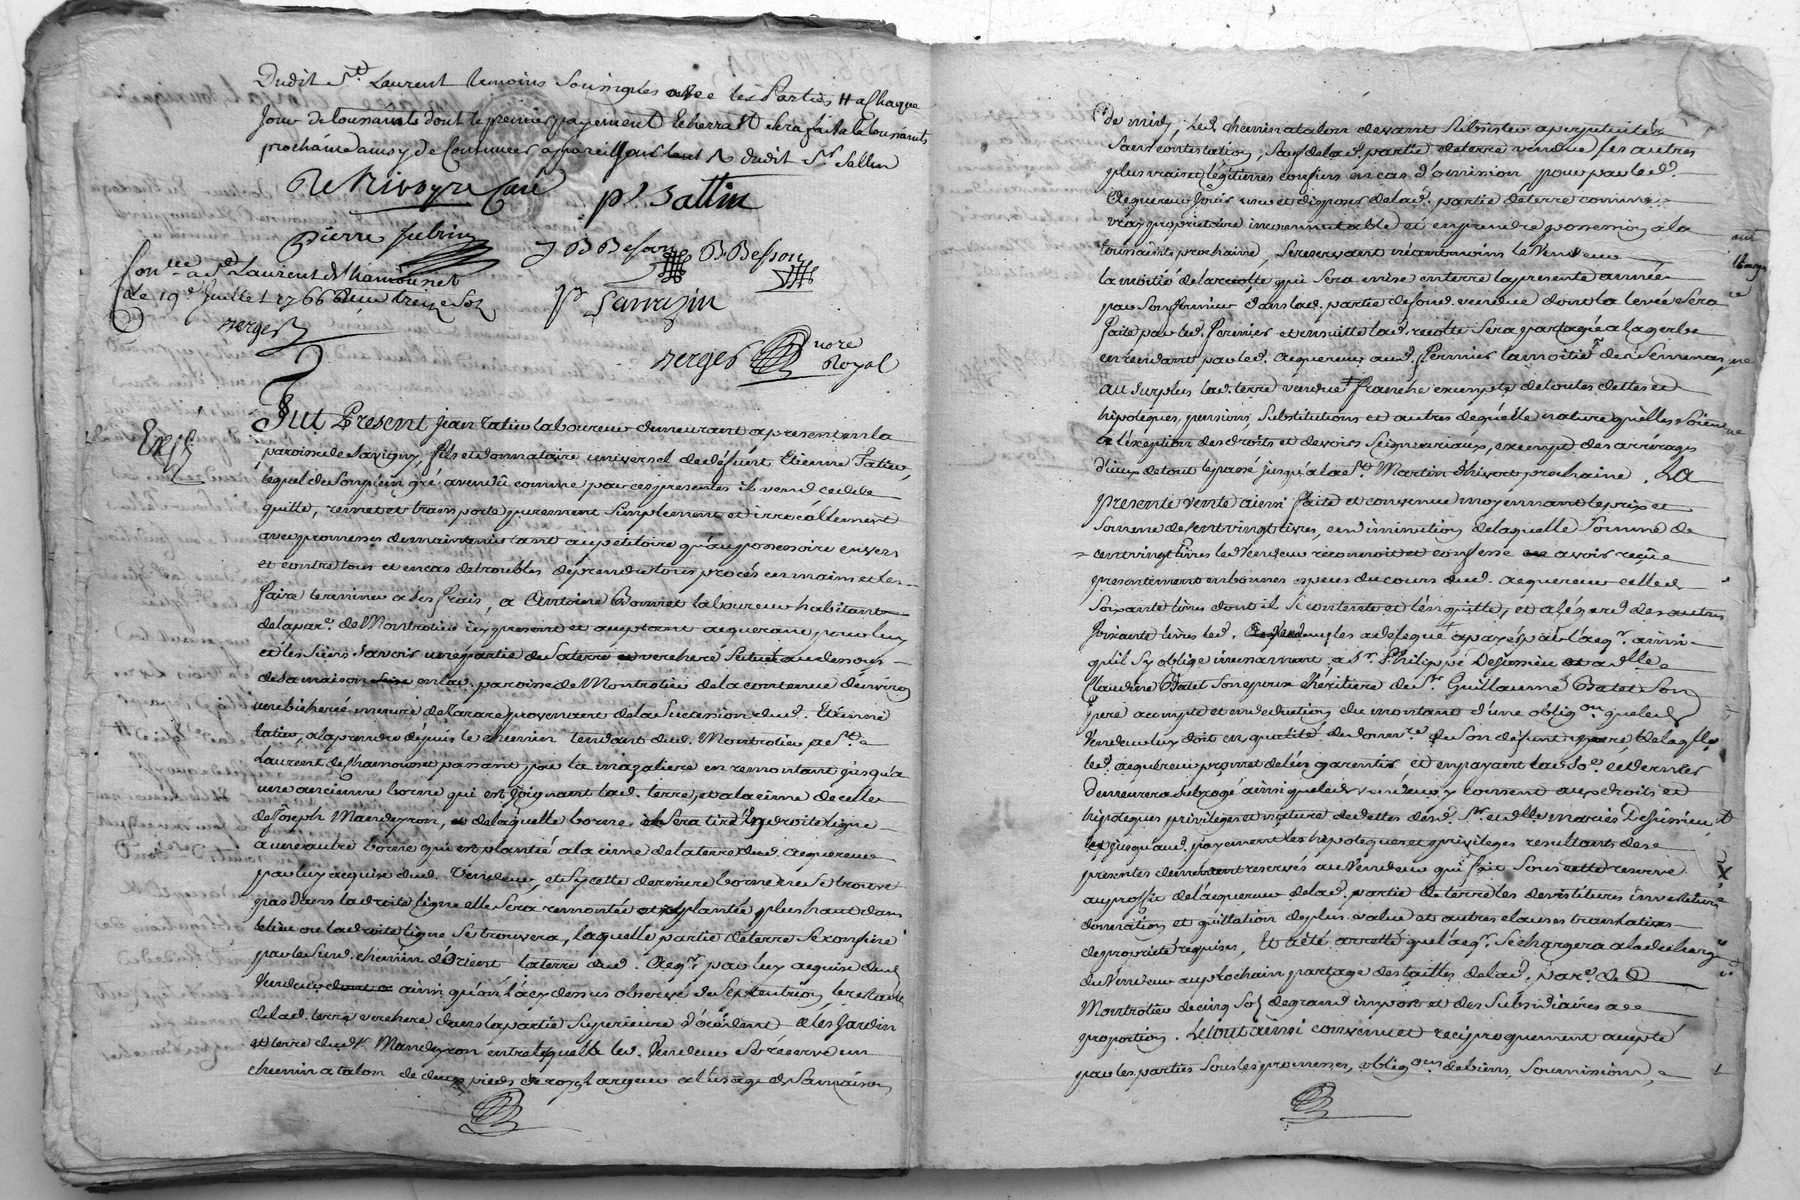 Dudit St Laurent temoins Soussignés avec les Parties # a Chaque
Jour de toussaints dont le premier payement Echerra et sera fait a la toussaints
prochaine ainsy de Continuer a pareil jour ledit Sr Sallin
De Rivoyre Curé pr Sattin
Pierre Jubrin J B Besson B. Besson
Conlée a St Laurent de Chamousset
de 19e Juillet 1766 treize Sols
nerger
pr Sarrazin
nerger nore Royal
Exp
Fut Present Jean Tatieu laboureur demeurant a present en la
paroisse de Savigny, fils et donnataire universel de deffunt Etienne Tatieu,
lequel de Son plein gré a vendû comme par ces presentes il vend cedde
quitte, remet et transporte purement Simplement et irrevocablement
avec promesses de maintenir tant au petitoire qu'au possessoire envers
et contre tous et en cas de troubles de prendre tous procés en mains et les
faire terminer a ses frais, a Antoine Bonnet laboureur habitant
de la par. de Montrotier icy present et acceptant acquerant pour luy
et les Siens Savoir une partie de Sa terre verchere Situé au dessous
de Sa maison en lad. paroisse de Montrotier de la contenue d'environ
une bicherée mesure de Tarare provenant de la Succession dud. Etienne
tatieu, a la prendre depuis le chemin tendant dud. Montrotier a St
Laurent de Chamousset passant par la mazaliere en remontant jusqu'a
une ancienne borne qui est Joignant lad. terre, et a la cime de celle
de Joseph Mandeyron, de laquelle borne, Sera tiré en droite ligne
a une autre borne qui est plantée a la cime de la terre dud. acquereur
par luy acquise dud. Vendeur, et Sy cette derniere borne ne Se trouve
pas dans la droite ligne elle Sera remontée et plantée plus haut dans
le lieu ou la droite ligne Se trouvera, laquelle partie de terre Se confine
par le Susd. chemin d'Orient la terre dud. Acqr par luy acquise dud.
Vendeur ainsi qu'on l'a cy dessus observé du Septentrion, le restant
de lad. terre verchere dans la partie Superieure d'occident & les Jardin
et terre dud. Mandeyron entre lesquelles led. Vendeur Se reserve un
chemin a talon de deux pieds de roy largeur a l'usage de Sa maison
de midy, led. chemin a talon devant Subsister a perpetuité
Sans contestation, Sauf de lad. partie de terre vendue Ses autres
plus vrais et legitimes confins en cas d'omission pour par led.
Acquereur Jouir user et disposer de lad. partie de terre comme
vray proprietaire incommutable et en prendre possession a la
toussaints prochaine, Se reservant neantmoins le Vendeur
la moitié de la recolte qui Sera mise en terre la presente année
par Son fermier dans lad. partie de fond vendue dont la levée Sera
faite par led. fermier et ensuitte lad. recolte Sera partagée a la gerbe
en rendant par led. acquereur aud. fermier la moitié des Semences
au Surplus lad. terre vendue franche exempte de toutes dettes et
hipoteques, pensions, Substitutions et autres de quelle nature qu'elles Soient
a l'exeption des droits et devoirs Seigneuriaux, exempt des arrerages
d'iceux de tout le passé jusqu'a la St Martin d'hivert prochaine. La
presente vente ainsi faite et convenue moyennant le prix et
Somme de Cent vingt livres, en diminution de laquelle Somme de
cent vingt livres led. Vendeur reconnoit et confesse avoir reçue
presentement en bonnes especes du cours dud. acquereur celle de
Soixante livres dont il Se contente et l'en quitte, et a l'égard des autres
Soixante livres led. Vendeur les a delegué a payé par l'acqr. ainsi
qu'il Sy oblige incessament, a Sr Philippe Dejussieu et a dlle
Claudine Batet Son epoux heritiere de Sr Guillaume Batet Son
pere a compte et en deduction du montant d'une obligon que led.
Vendeur luy doit en qualité de donnre de Son defunt pere de laqlle
led. acquereur promet de l'en garentir et en payant lad. So. ce dernier
demeurera Subrogé ainsi que led. vendeur y consent aux droits et
hipoteques privileges et nature de dettes desd. Sr. et dlle mariés Dejussieu, &
et jusqu'aud. payement les hipoteques et privileges resultant des
presentes demeurant reservés au Vendeur qui fait Sous cette reserve
au proffit de l'acquereur de lad. partie de terre les devestitures investiture
donnation et quittation de plus value et autres clauses translatives
de proprieté requises. Et a été arretté que l'acqr. Se chargera a la decharge
du Vendeur au prochain partage des tailles de lad. par. de
Montrotier de cinq Sols de grand impost et des Subsidiaires a
proportion. Le tout ainsi convenu et reciproquement accepté
par les parties Sous les promesses, obligons de biens, Soumissions,